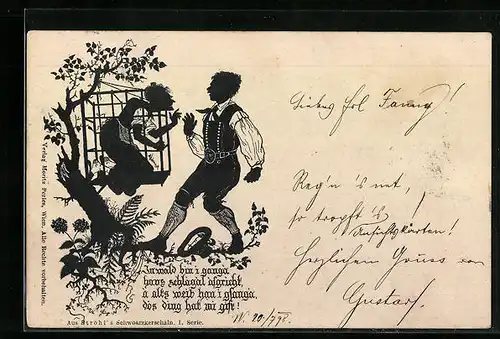 Verlag Moritz Perles, Wien. Alle Rechte vorbehalten.
In wald bin i ganga,
haus schlagal afgricht,
à altes weib han i gfanga,
dös ding hat mi gift!
Aus Ströhl's Schwoarzkerschaln, 1. Serie.
Liebes Frl. Fanny!
Reg'n 's net,
so tropft's
Ansichtskarten!
Herzlichen Gruss von
Gustav.
W. 20/7 98.